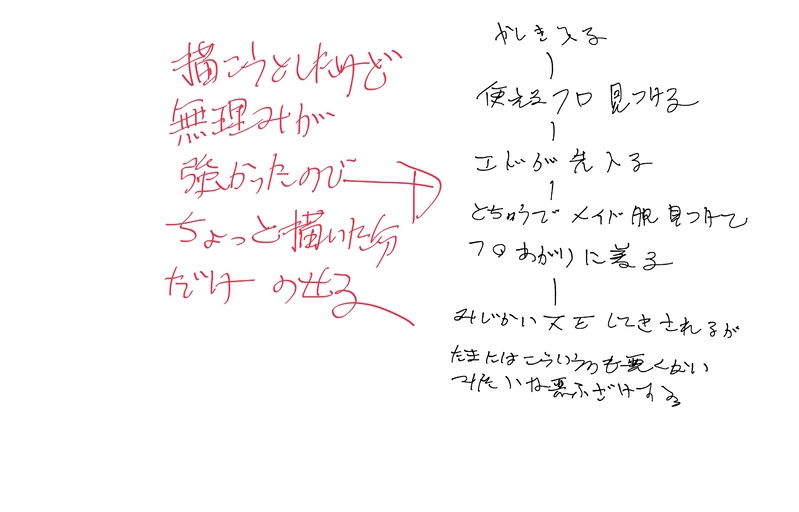 描こうとしたけど
無理みが
強かったので
ちょっと描いた分
だけ のせる
かしき入る
使えるフロ 見つける
エドが先入る
とちゅうで メイド服 見つけて
フロあがりに着る
みじかい丈を してきされるが
たまにはこういうのも悪くない
みたいな悪ふざけする